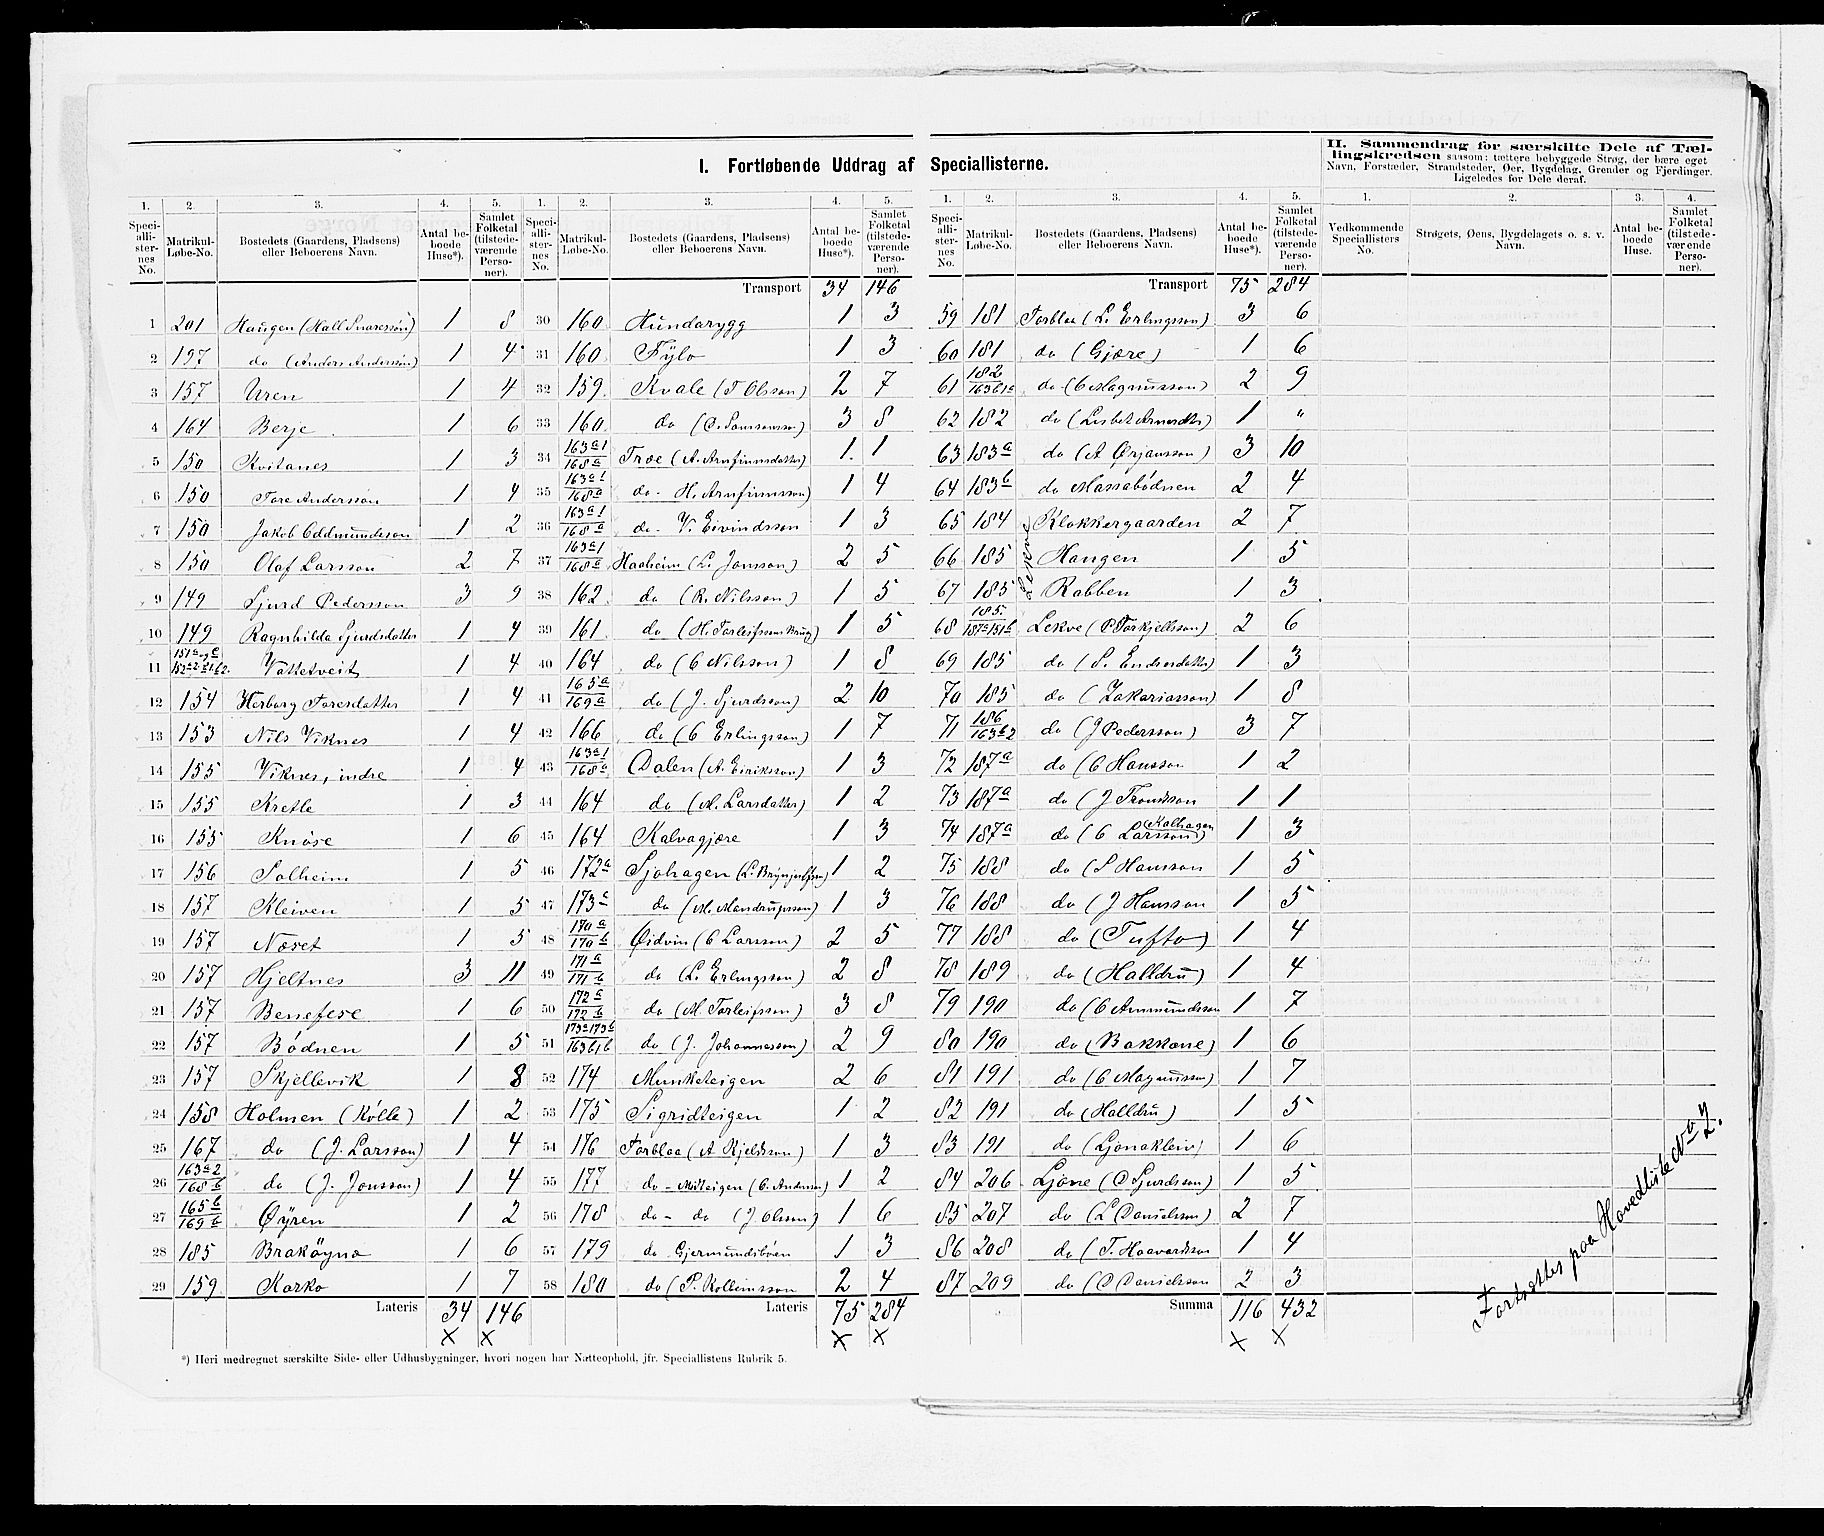 I. Fortløbende Uddrag af Speciallisterne.
II. Sammendrag for særskilte Dele af Tællingskredsen saasom: tættere bebyggede Strøg, der bære eget
Navn, Forstæder, Strandsteder, Øer, Bygdelag, Grender og Fjerdinger.
Ligeledes for Dele deraf.
1. 2. 3. 4. 5. 1. 2. 3. 4. 5. 1. 2. 3. 4. 5. 1. 2. 3. 4.
Speciallisternes No. Matrikul-Løbe-No. Bostedets (Gaardens, Pladsens) eller Beboerens Navn. Antal beboede Huse*). Samlet Folketal (tilstedeværende Personer).
Speciallisternes No. Matrikul-Løbe-No. Bostedets (Gaardens, Pladsens) eller Beboerens Navn. Antal beboede Huse*). Samlet Folketal (tilstedeværende Personer).
Speciallisternes No. Matrikul-Løbe-No. Bostedets (Gaardens, Pladsens) eller Beboerens Navn. Antal beboede Huse*). Samlet Folketal (tilstedeværende Personer).
Vedkommende Speciallisters No. Strøgets, Øens, Bygdelagets o. s. v. Navn. Antal beboede Huse. Samlet Folketal (tilstedeværende Personer).
1 201 Haugen (Hall Snaressøn) 1 8
2 197 do (Anders Anderssøn) 1 4
3 157 Uren 1 4
4 164 Berje 1 6
5 150 Kvitanes 1 3
6 150 Tore Anderssøn 1 4
7 150 Jakob Oddmundsson 1 2
8 150 Olaf Larsson 2 7
9 149 Sjurd Pedersson 3 9
10 149 Ragnhilda Sjurdsdatter 1 4
11 Vattetveit 1 4
12 154 Herborg Toresdatter 1 4
13 153 Nils Viknes 1 4
14 155 Viknes, indre 1 4
15 155 Kretle 1 3
16 155 Knöse 1 6
17 156 Solheim 1 5
18 157 Kleiven 1 5
19 157 Næset 1 5
20 157 Hjeltnes 3 11
21 157 Benefese 1 6
22 157 Bödnen 1 5
23 157 Skjellevik 1 8
24 158 Holmen (Kölle) 1 2
25 167 do (J. Larsson) 1 4
26 163a2 168b do (J. Jonsson) 1 4
27 165b 169b Öyren 1 2
28 185 Braköyno 1 6
29 159 Karko 1 7
Lateris 34 146
x x
Transport 34 146
30 160 Hundarygg 1 3
31 160 Fylo 1 3
32 159 Kvale (T Olsson) 2 7
33 160 do 3 8
34 163a1 168a Troe (A. Arnfinnsdatter) 1 1
35 163a1 168a do - H. Arnfinnsson) 1 4
36 163a1 168a do - V. Eivindsson 1 3
37 163a1 168a Haaheim (L. Jonsson) 2 5
38 162 do (R. Nilsson) 1 5
39 161 do (H. Torleifsson Brug) 1 5
40 164 do (O Nilsson) 1 8
41 165a 169a do (J. Sjurdsson) 2 10
42 166 do (O Erlingsson) 1 7
43 163a1 168a Dalen (A. Eiriksson) 1 3
44 164 do (M. Larsdatter) 1 2
45 164 Kalvagjære 1 3
46 172a Sjohagen (L. Brynjulfsson) 1 2
47 173a do (M. Mandrupsson) 1 3
48 170a 170b Öidvin (O Larsson) 2 5
49 171a 171b do (L. Erlingsson) 2 8
50 172a 172b do (M. Torleifsson) 3 8
51 173a 173b 163b1b do (J. Johannesson) 2 9
52 174 Munketeigen 2 6
53 175 Sigridteigen 1 2
54 176 Torblaa (A Kjeldsson) 1 3
55 177 do - Midteigen (O. Anderson) 1 2
56 178 do - do (J Olsson) 1 6
57 179 do Gjermundsböen 1 3
58 180 do (P. Kolbeinsson 2 4
Lateris 75 284
x x
Transport 75 284
59 181 Torblaa (L. Erlingsson) 3 6
60 181 do (Gjære) 1 6
61 182 163b1a do (O Magnusson) 2 9
62 182 do (Lisbet Arnesdtter) 1 "
63 183a do (A Örjansson) 3 10
64 183b do Massabödnen 2 4
65 184 Klokkergaarden 2 7
66 185 Haugen 1 5
67 185 Rabben 1 3
68 185. 187a 151b Lekve (P Torkjellsson) 2 6
69 185 do (S. Endresdatter) 1 3
70 185 do (Zakariasson) 1 8
71 186 163b2 do (J Pedersson) 3 7
72 187a do (O Hansson 1 2
73 187a do (J Trondsson 1 1
74 187a do (O Larsson) (Kalhagen 1 3
75 188 do (S Hansson 1 5
76 188 do (J Hansson 1 5
77 188 do (Tufto) 1 4
78 189 do (Halldru) 1 4
79 190 do (O Ammundsson 1 7
80 190 do (Bakkane) 1 6
81 191 do (O Magnusson) 1 7
82 191 do (Halldru) 1 5
83 191 do (Ljonakleiv) 1 6
84 206 Ljöne (O Sjurdsson) 1 5
85 207 do (L Danielsson) 2 7
86 208 do (T. Haavardsson 1 4
87 209 do (O Danielsson 2 3
Summa 116 432
x x
Fortsættes paa Hovedliste No 2.
*) Heri medregnet særskilte Side- eller Udhusbygninger, hvori nogen har Natteophold, jfr. Speciallistens Rubrik 5.